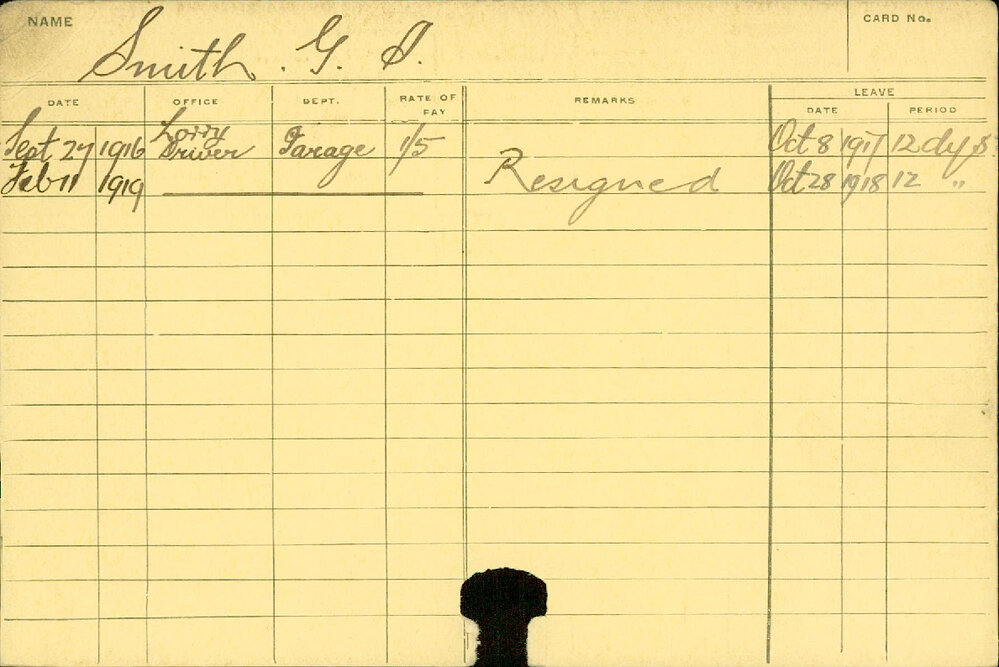 NAME
CARD No.
Smith. G. S.
DATE OFFICE DEPT. RATE OF PAY REMARKS LEAVE
DATE PERIOD
Sept 27 1916 Lorry Driver Garage 1/5 Oct 8 1917 12 dys
Feb 11 1919 Resigned Oct 28 1918 12 "